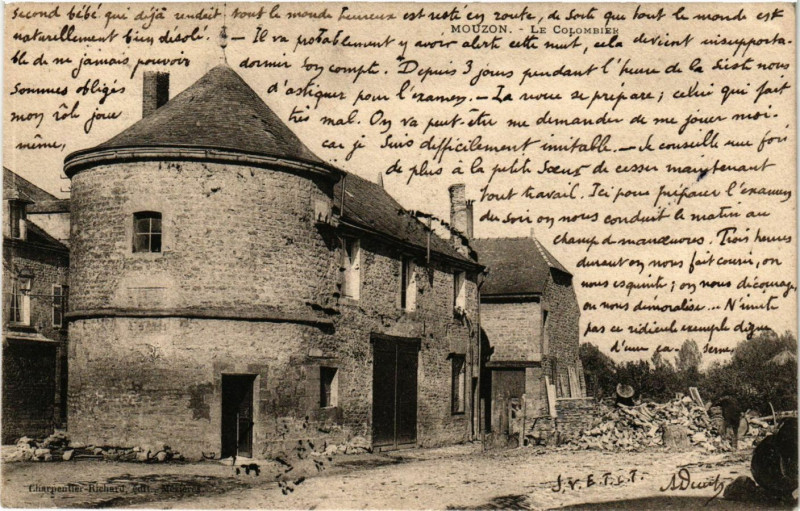 second bébé qui déjà rendait tout le monde heureux est resté en route, de sorte que tout le monde est
MOUZON. - LE COLOMBIER
naturellement bien désolé. — Il va probablement y avoir alerte cette nuit, cela devient insupporta-
ble de ne jamais pouvoir dormir son compte. Depuis 3 jours pendant l'heure de la sieste nous
sommes obligés d'astiquer pour l'examen. — La revue se prépare ; celui qui fait
mon rôle joue très mal. On va peut-être me demander de me jouer moi-
même, car je suis difficilement imitable. — Je conseille une fois
de plus à la petite Sœur de cesser maintenant
tout travail. Ici pour préparer l'examen
du soir on nous conduit le matin au
champ de manœuvres. Trois heures
durant on nous fait courir, on
nous esquinte ; on nous décourage,
on nous démoralise... N'imite
pas ce ridicule exemple digne
d'une ca- serne.
J.V.E.T.e.T.
Charpentier-Richard, édit.